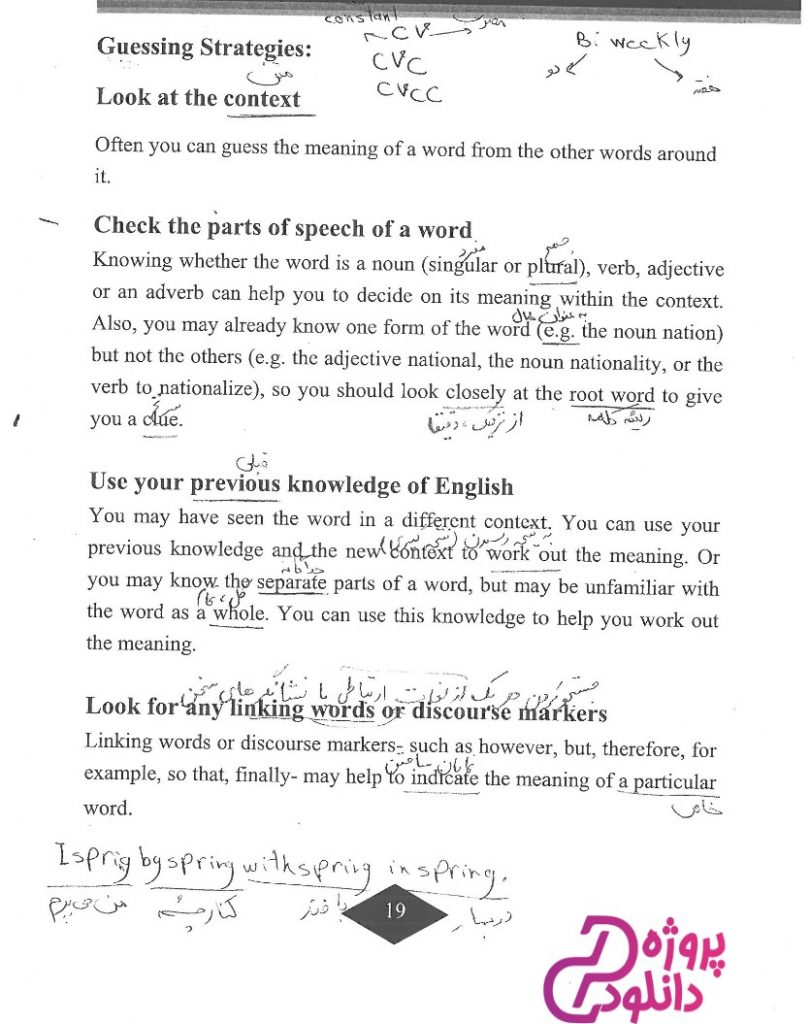 constant
CV
مصوت
Guessing Strategies:
CVC
Bi weekly
دو
هفته
متن
CVCC
Look at the context
Often you can guess the meaning of a word from the other words around
it.
Check the parts of speech of a word
مفرد
جمع
Knowing whether the word is a noun (singular or plural), verb, adjective
or an adverb can help you to decide on its meaning within the context.
به عنوان مثال
Also, you may already know one form of the word (e.g. the noun nation)
but not the others (e.g. the adjective national, the noun nationality, or the
verb to nationalize), so you should look closely at the root word to give
you a clue.
از نزدیک، دقیقا
ریشه کلمه
قبلی
Use your previous knowledge of English
You may have seen the word in a different context. You can use your
به نتیجه رسیدن (نتیجه گیری)
previous knowledge and the new context to work out the meaning. Or
جداگانه
you may know the separate parts of a word, but may be unfamiliar with
کل، تمام
the word as a whole. You can use this knowledge to help you work out
the meaning.
جستجو کردن هر یک از لغات ارتباطی یا نشانگر های سخن
Look for any linking words or discourse markers
Linking words or discourse markers- such as however, but, therefore, for
نمایان ساختن
example, so that, finally- may help to indicate the meaning of a particular
خاص
word.
I sprig by spring with spring in spring.
من می پرم
کنار چشمه
با فنر
در بهار
19
پروژه
دانلود